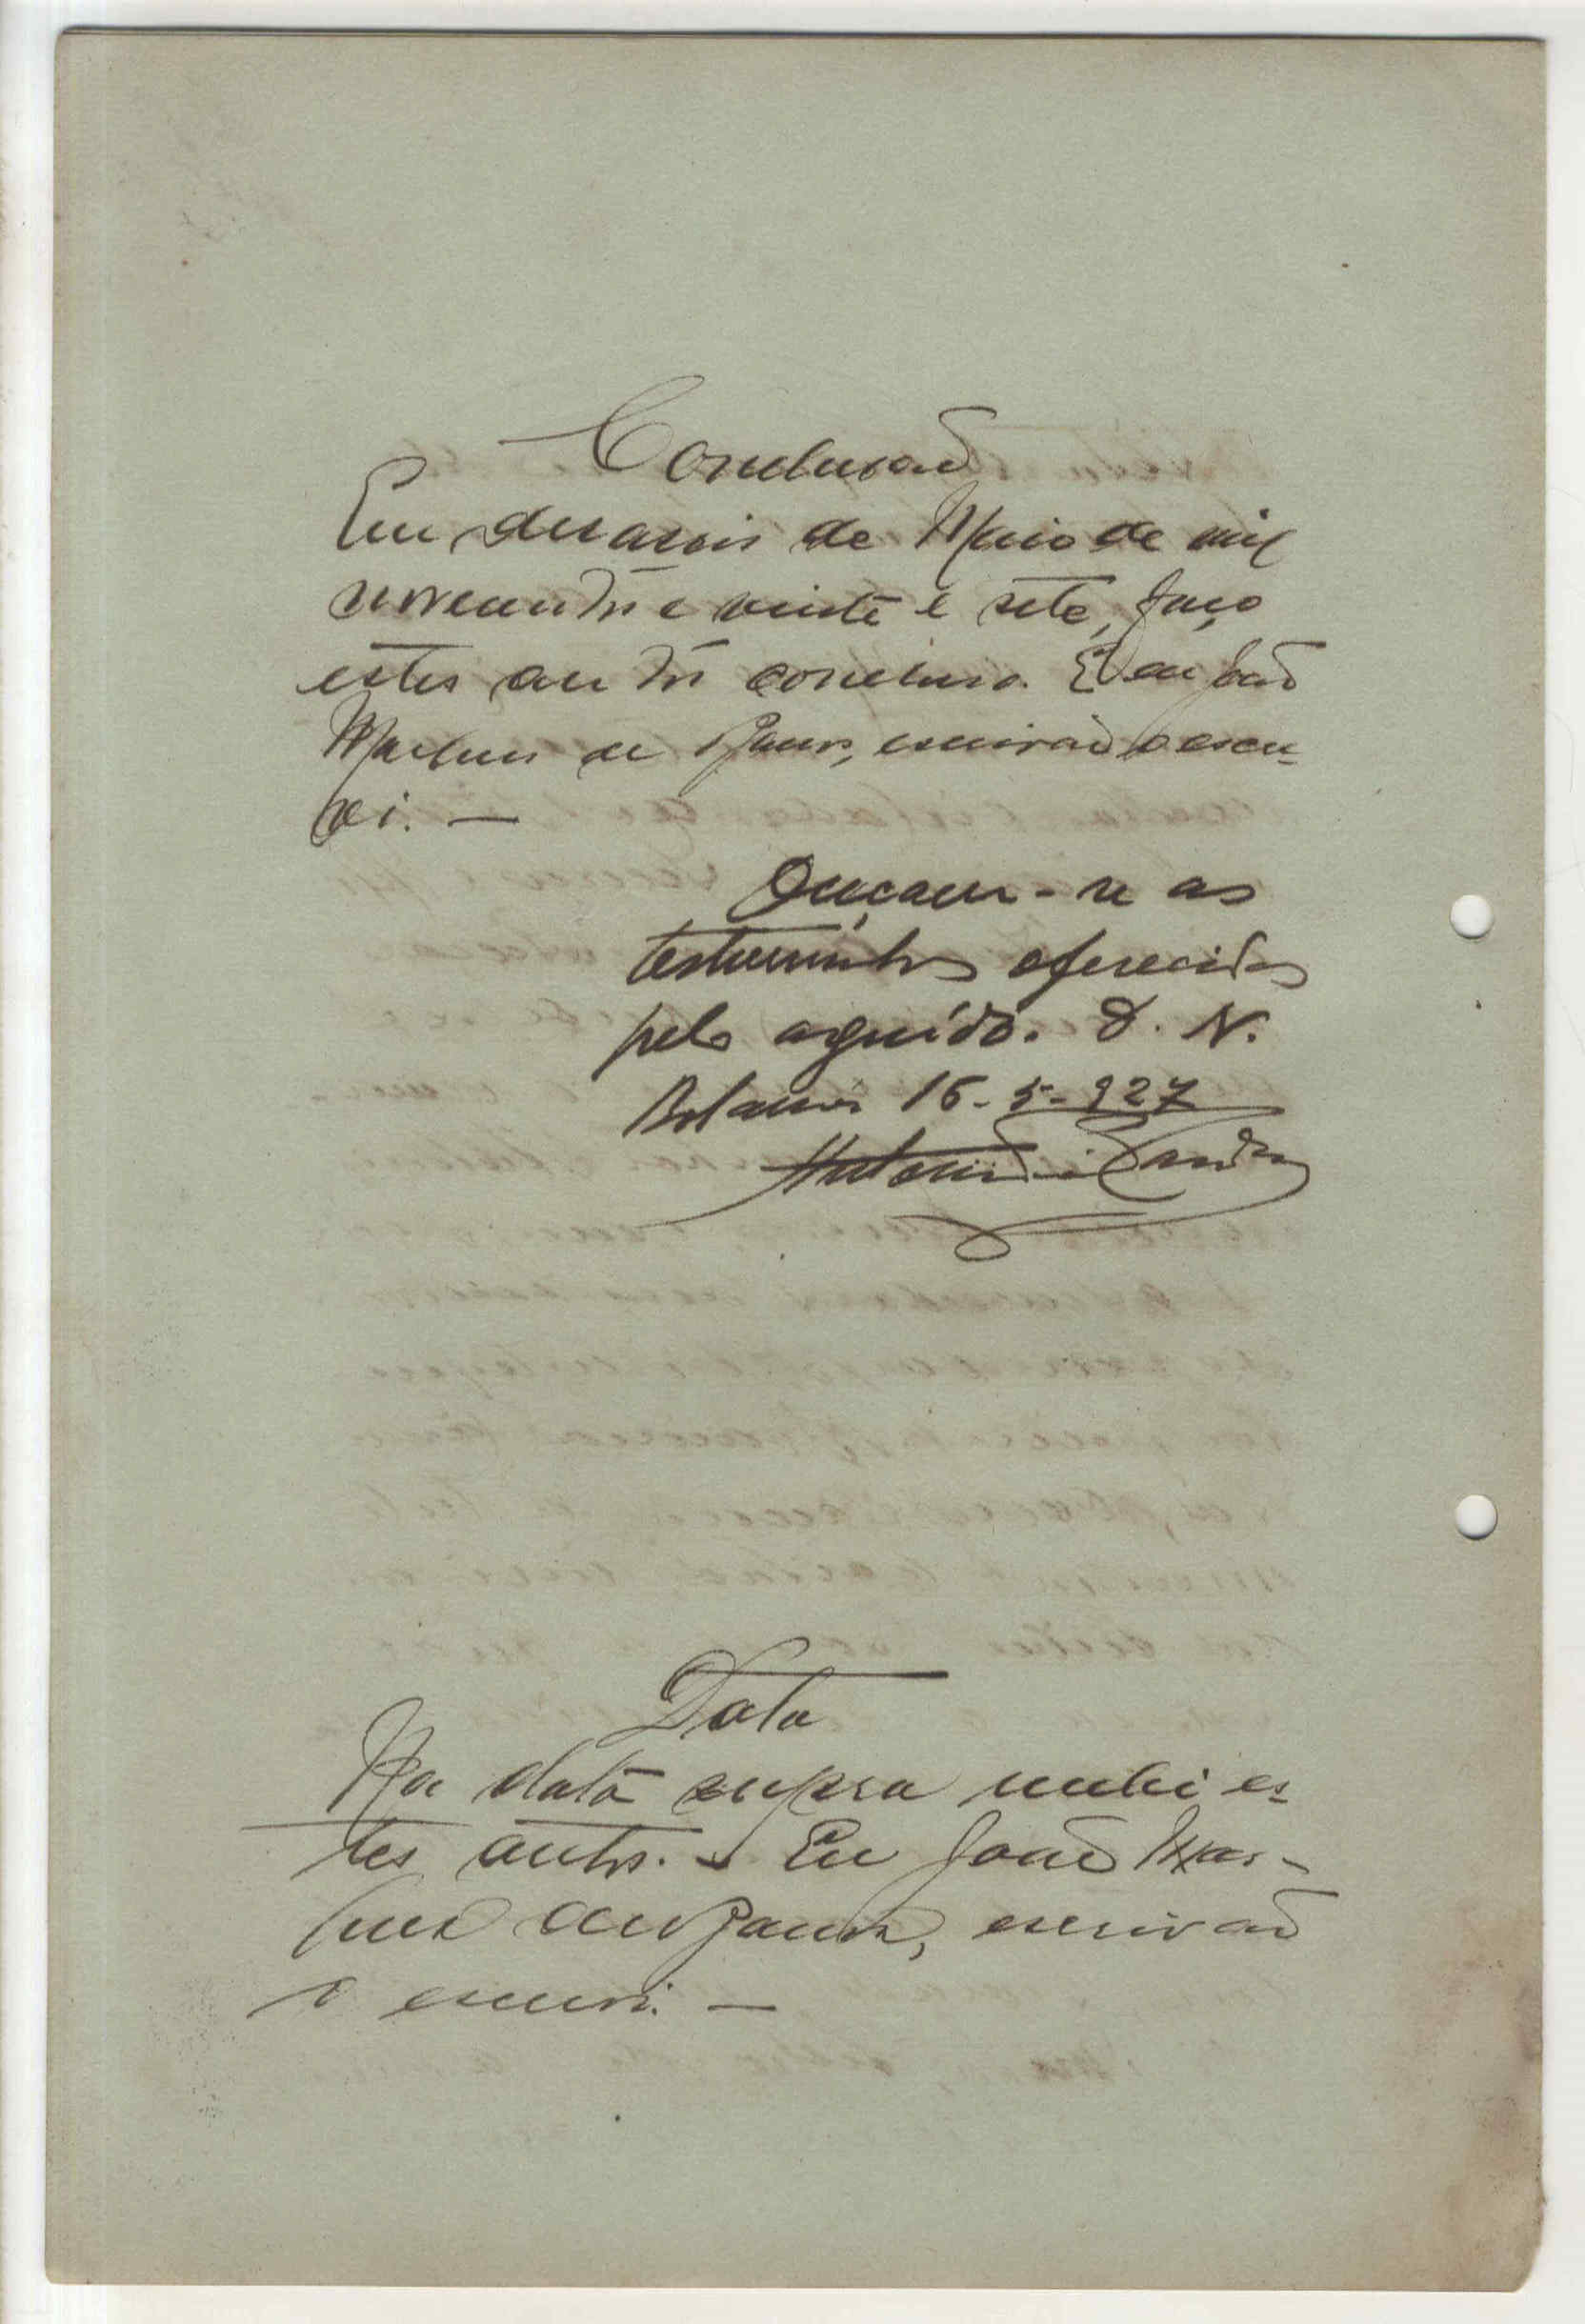 Conclusaõ
Em desaseis de Maio de mil
novecentos e vinte e sete, faço
estes autos concluso. E eu João
Martins de Barros, escrivão o escre-
vi. —
Ouçam-se as
testeminhas oferecidas
pelo arguido. D. N.
Bolama 16-5-927
Antonio
Data
Na data supra recebi es-
tes autos. Eu João Mar-
tins de Barros, escrivaõ
o escrevi. —